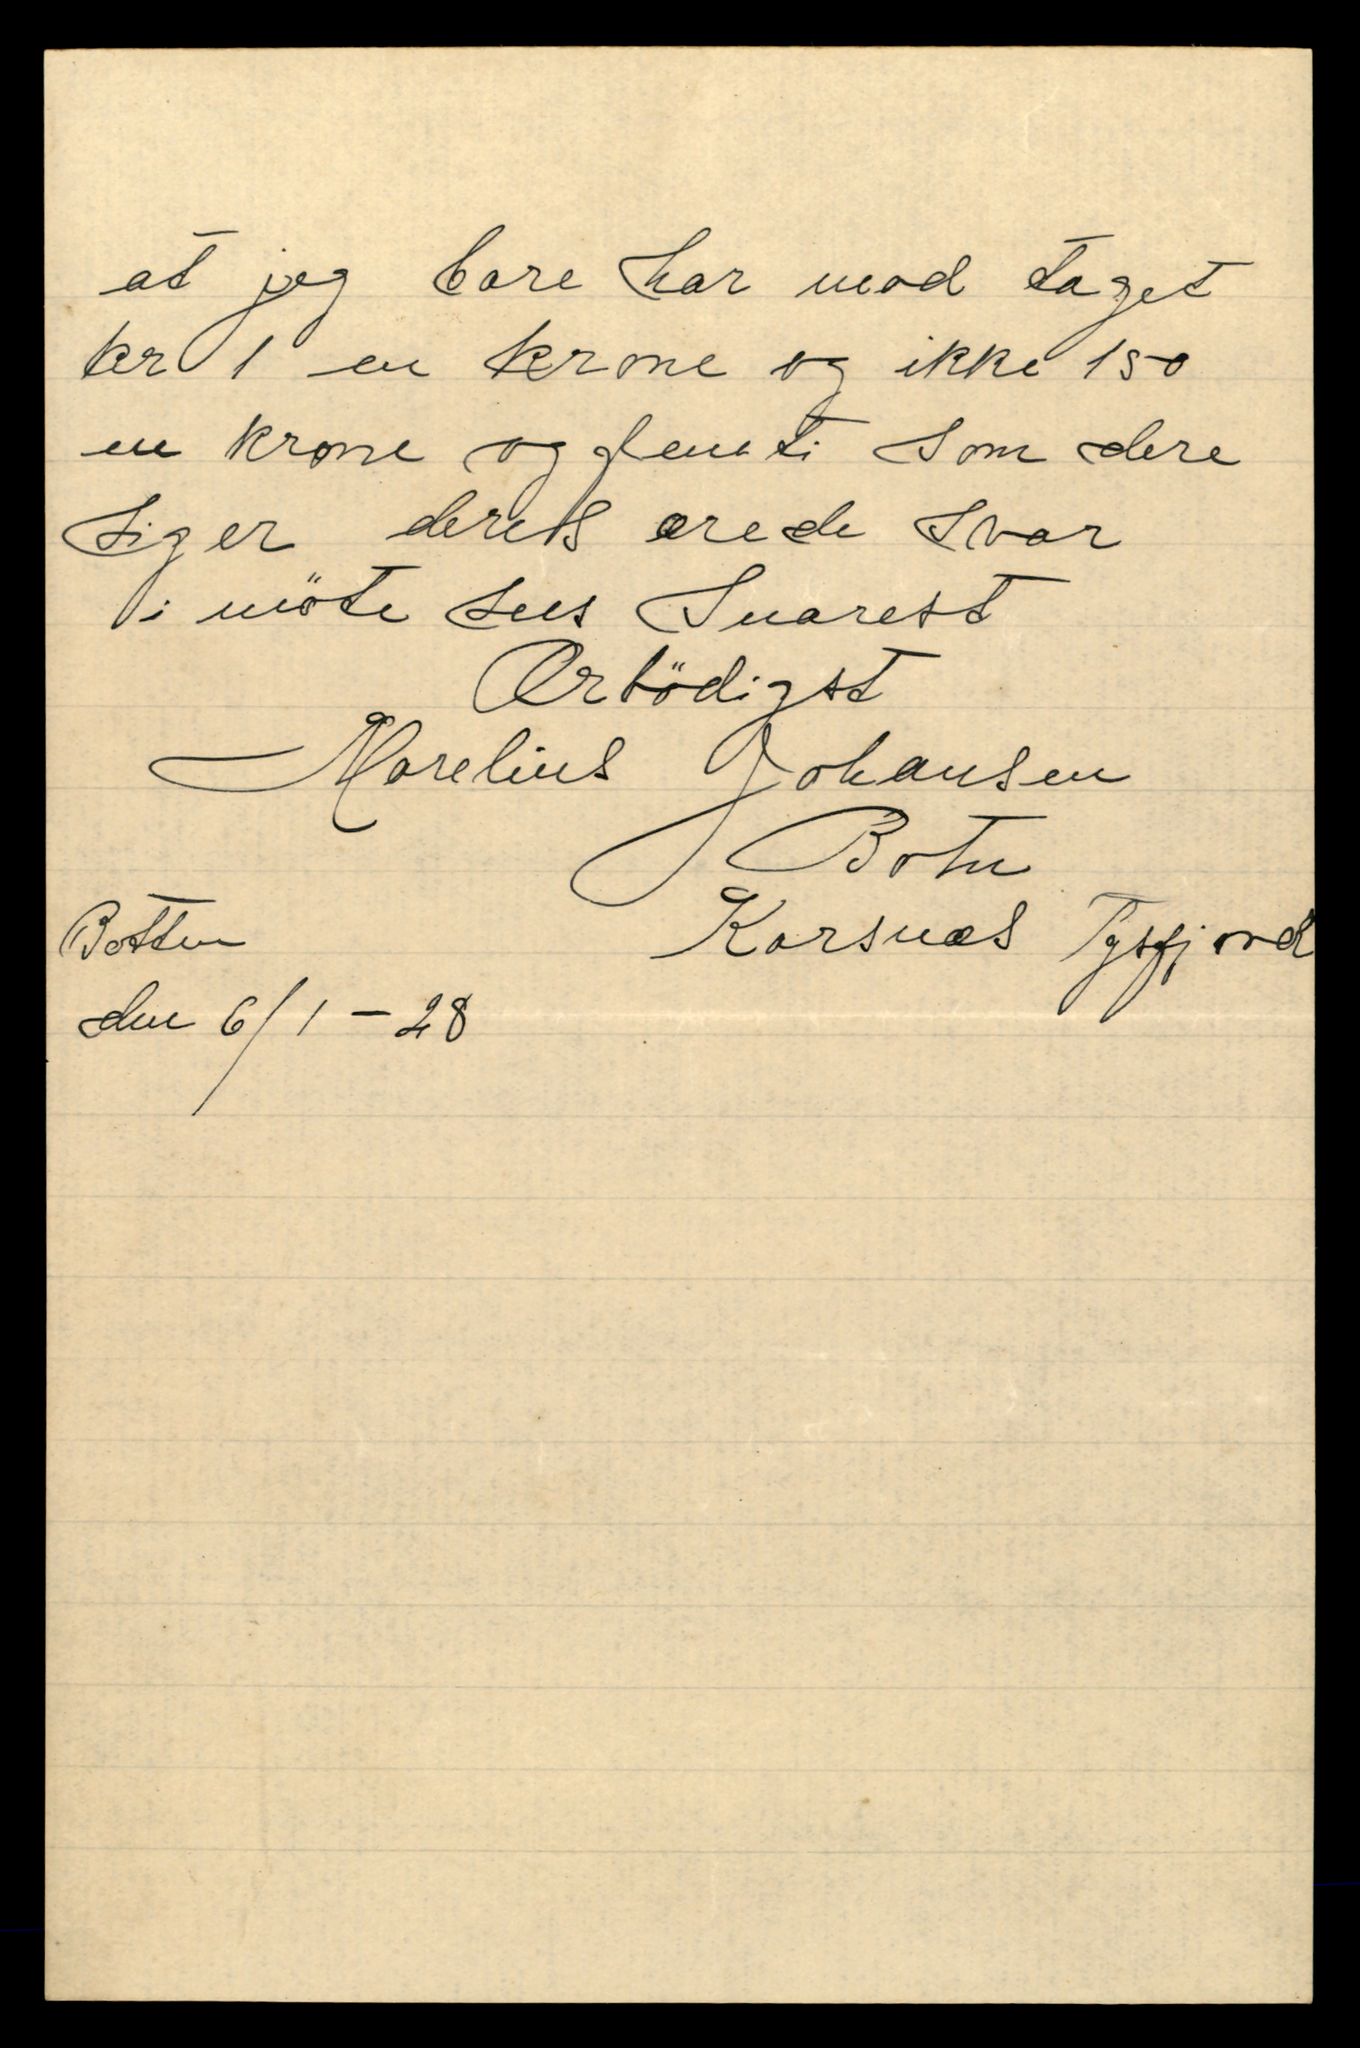 at jeg bare har mod taget
kr 1 en krone og ikke 150
en krone og femti som dere
siger deres ærede svar
i möte sees snarest
Ærbödigst
Marelius Johansen
Botn
Korsnæs Tysfjord
Botten
den 6/1 - 28